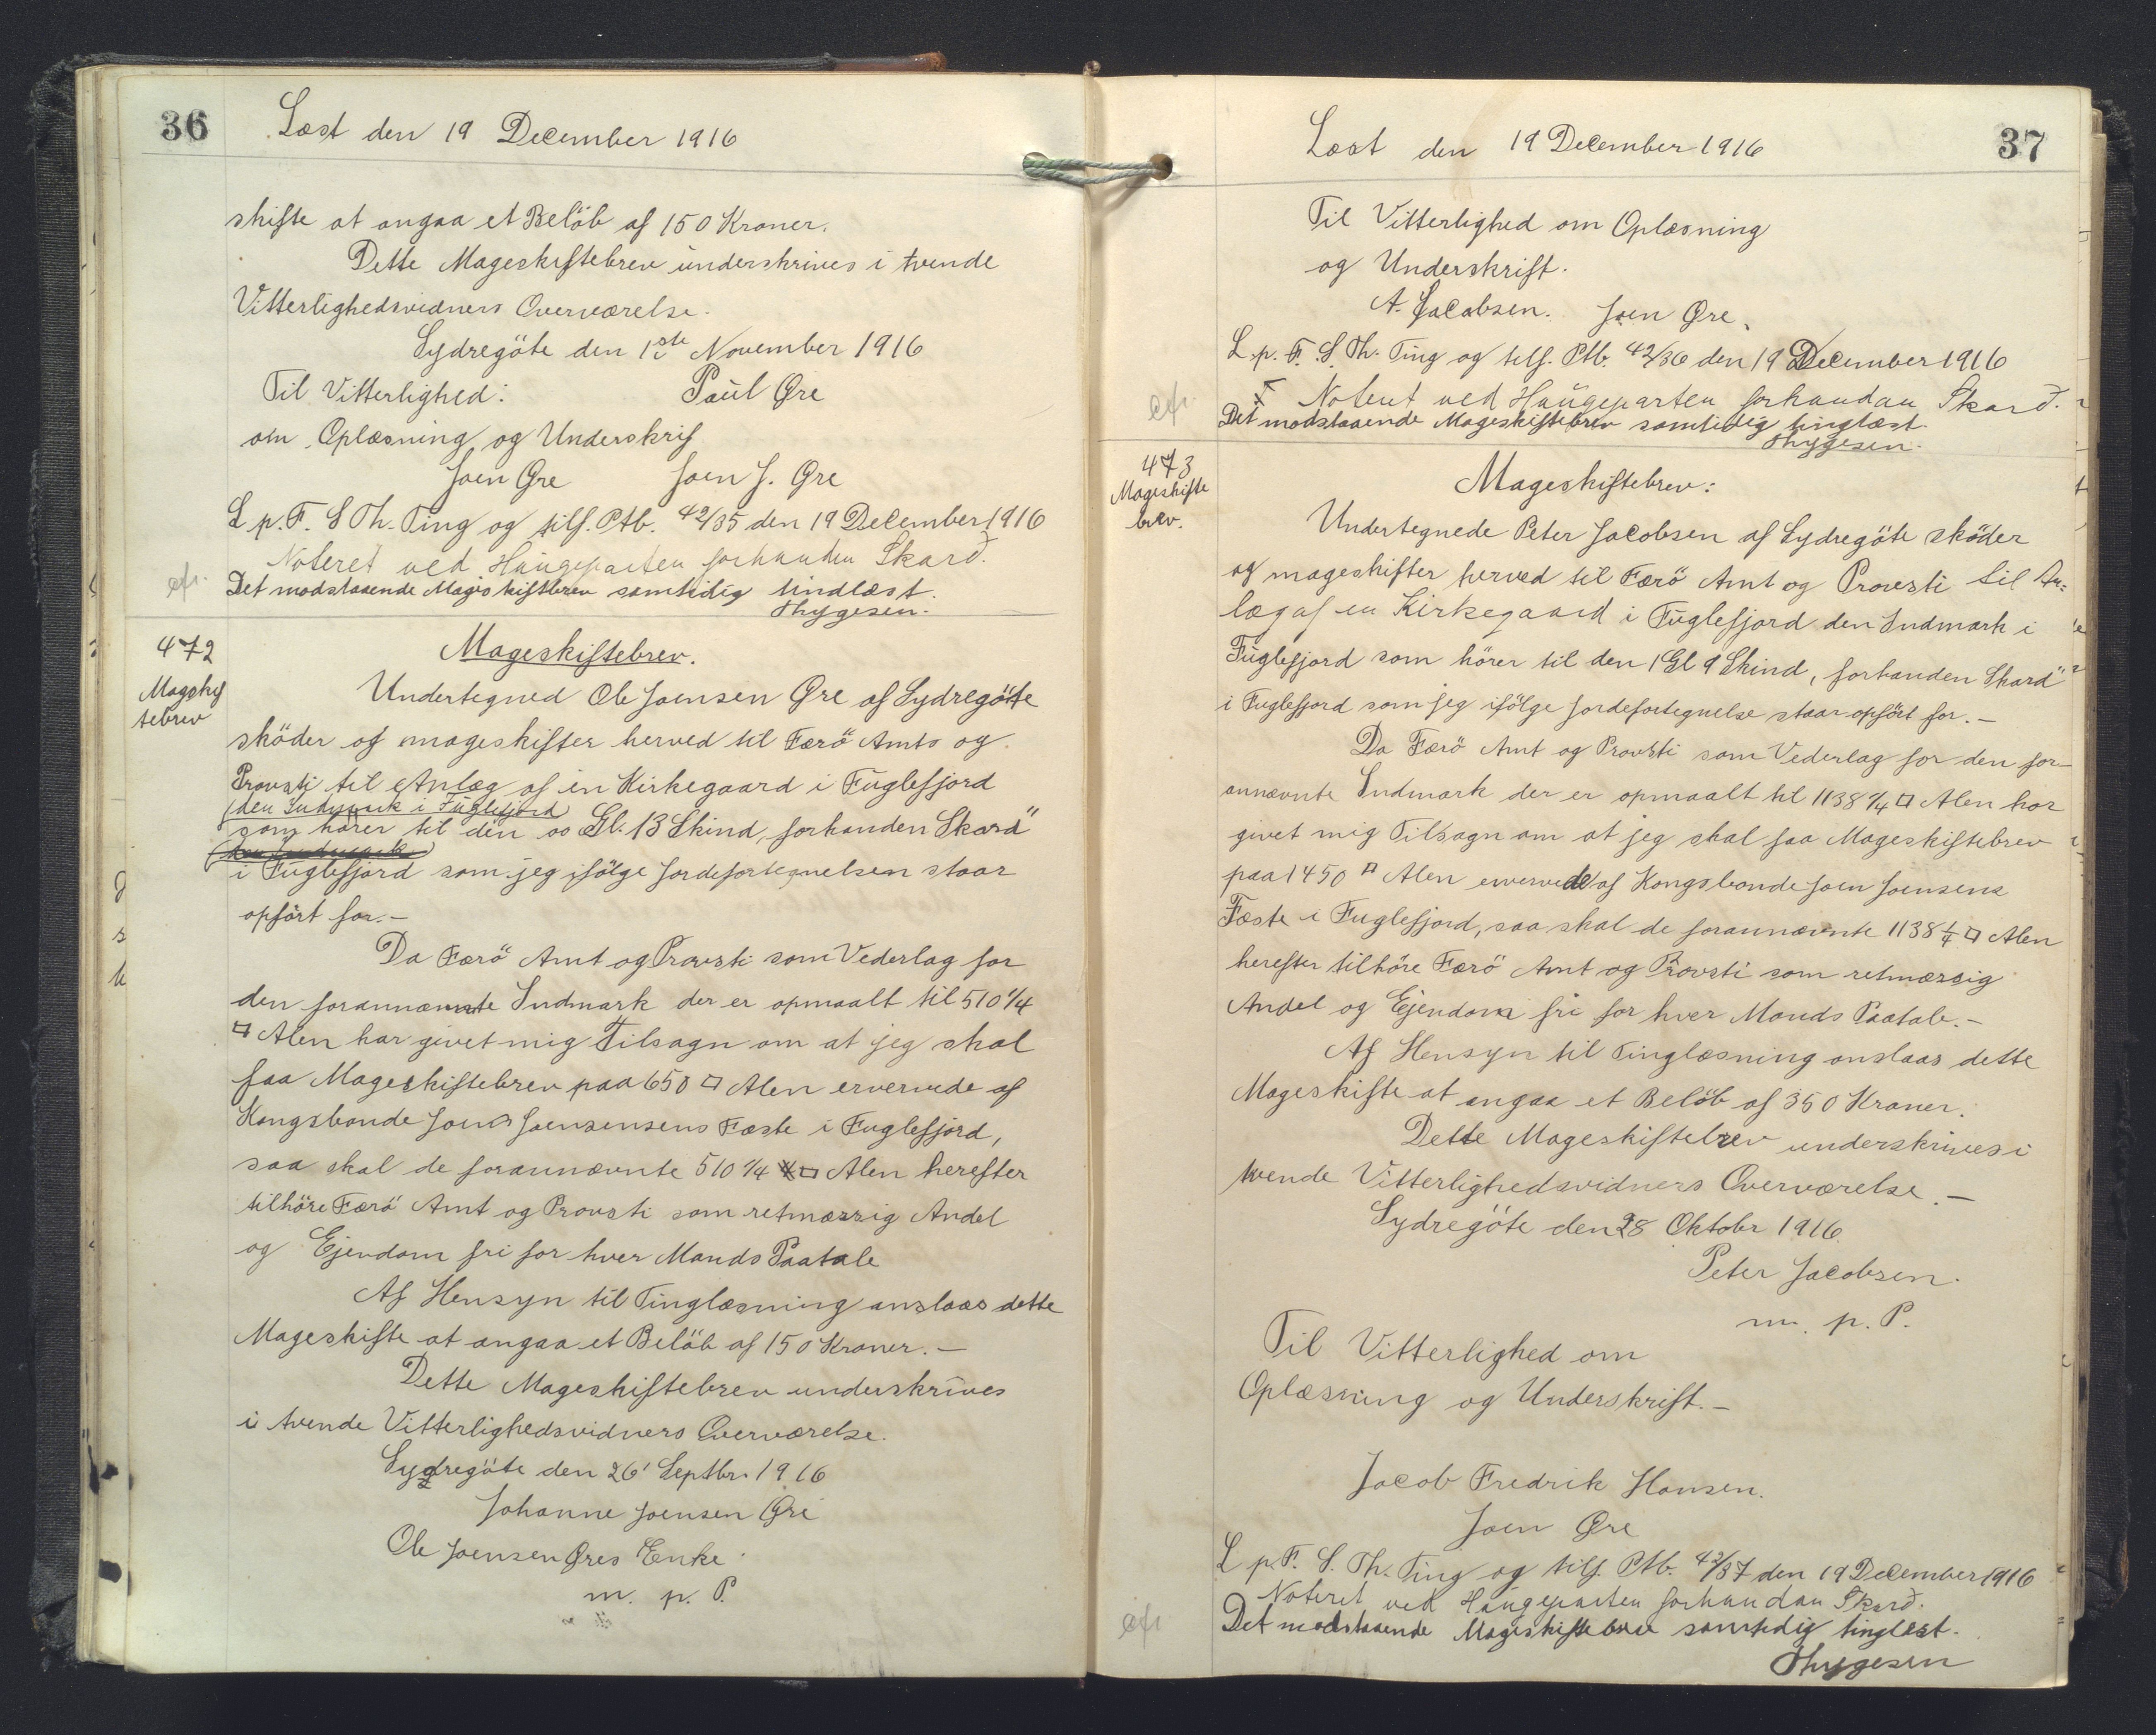 36
Læst den 19 December 1916
skifte at angaa et Belöb af 150 Kroner.
Dette Mageskiftebrev underskrives i tvende
Vitterlighedsvidners Overværelse.
Sydregöte den 1ste November 1916
Til Vitterlighed: Paul Øre
om Oplæsning og Underskrif
Joen Øre Joen J. Øre
L p. F. S Th. Ting og tilf. Ptb. 42/35 den 19 December 1916
Noteret ved Haugeparten forhanden Skarð.
cfr. Det modstaaende Mageskiftbrev samtidig tindlæst.
Thygesen.
472
Magskif
tebrev
Mageskiftebrev.
Undertegned Ole Joensen Øre af Sydregöte
sköder og mageskifter herved til Færö Amts og
Provsti til Anlæg af en Kirkegaard i Fuglefjord
den Indmark i Fuglefjord
som hörer til den oo Gl. 13 Skind, forhanden Skard"
i Fuglefjord som jeg ifölge Jordefortegnelsen staar
opfört for.-
Da Færö Amt og Provsti som Vederlag for
den forannævnte Indmark der er opmaalt til 510 1/4
□ Alen har givet mig Tilsagn om at jeg skal
faa Mageskiftebrev paa 650 □ Alen ervervede af
Kongsbonde Joens Joensensens Fæste i Fuglefjord,
saa skal de forannævnte 510 1/4 □ Alen herefter
tilhöre Færö Amt og Provsti som retmæssig Andel
og Ejendom fri for hver Mands Paatale
Af Hensyn til Tinglæsning anslaas dette
Mageskifte at angaa et Belöb af 150 Kroner.-
Dette Mageskiftebrev underskrives
i tvende Vitterlighedsvidners Overværelse.
Sydregöte den 26' Septbr. 1916
Johanne Joensen Øre
Ole Joensen Øres Enke
m. p. P.
37
Læst den 19 December 1916
Til Vitterlighed om Oplæsning
og Underskrift.
A. Jacobsen. Joen Øre.
L. p. F. S. Th. Ting og tilf. Ptb. 42/36 den 19 December 1916
Noteret ved Haugeparten forhandan Skarð.
cfr. Det modstaaende Mageskiftebrev samtidig tinglæst.
Thygesen.
473
Mageskifte
brev.
Mageskiftebrev:
Undertegnede Peter Jacobsen af Sydregöte sköder
og mageskifter herved til Færö Amt og Provsti til An-
læg af en Kirkegaard i Fuglefjord den Indmark i
Fuglefjord som hörer til den 1 Gl 9 Skind, forhanden Skard"
i Fuglefjord som jeg ifölge Jordefortegnelse staar opfört for.-
Da Færö Amt og Provsti som Vederlag for den for-
annævnte Indmark der er opmaalt til 1138 1/4 □ Alen har
givet mig Tilsagn om at jeg skal faa Mageskiftebrev
paa 1450 □ Alen erverved af Kongsbonde Joen Joensens
Fæste i Fuglefjord, saa skal de forannævnte 1138 1/4 □ Alen
herefter tilhöre Færö Amt og Provsti som retmæssig
Andel og Ejendom fri for hver Mands Paatale.-
Af Hensyn til Tinglæsning anslaas dette
Mageskifte at angaa et Belöb af 350 Kroner.
Dette Mageskiftebrev underskrives i
tvende Vitterlighedsvidners Overværelse.-
Sydregöte den 28 Oktobr 1916
Peter Jacobsen.
m. p. P.
Til Vitterlighed om
Oplæsning og Underskrift.-
Jacob Fredrik Hansen.
Joen Øre
L p. F. S. Th. Ting og tilf. Ptb. 42/37 den 19 December 1916
Noteret ved Haugeparten forhandan Skarð.
cfr Det modstaaende Mageskiftebrev samtidig tinglæst.
Thygesen